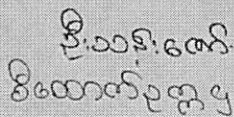 ဦးသန်းဇော်
စီထောက်ဥက္ကဌ